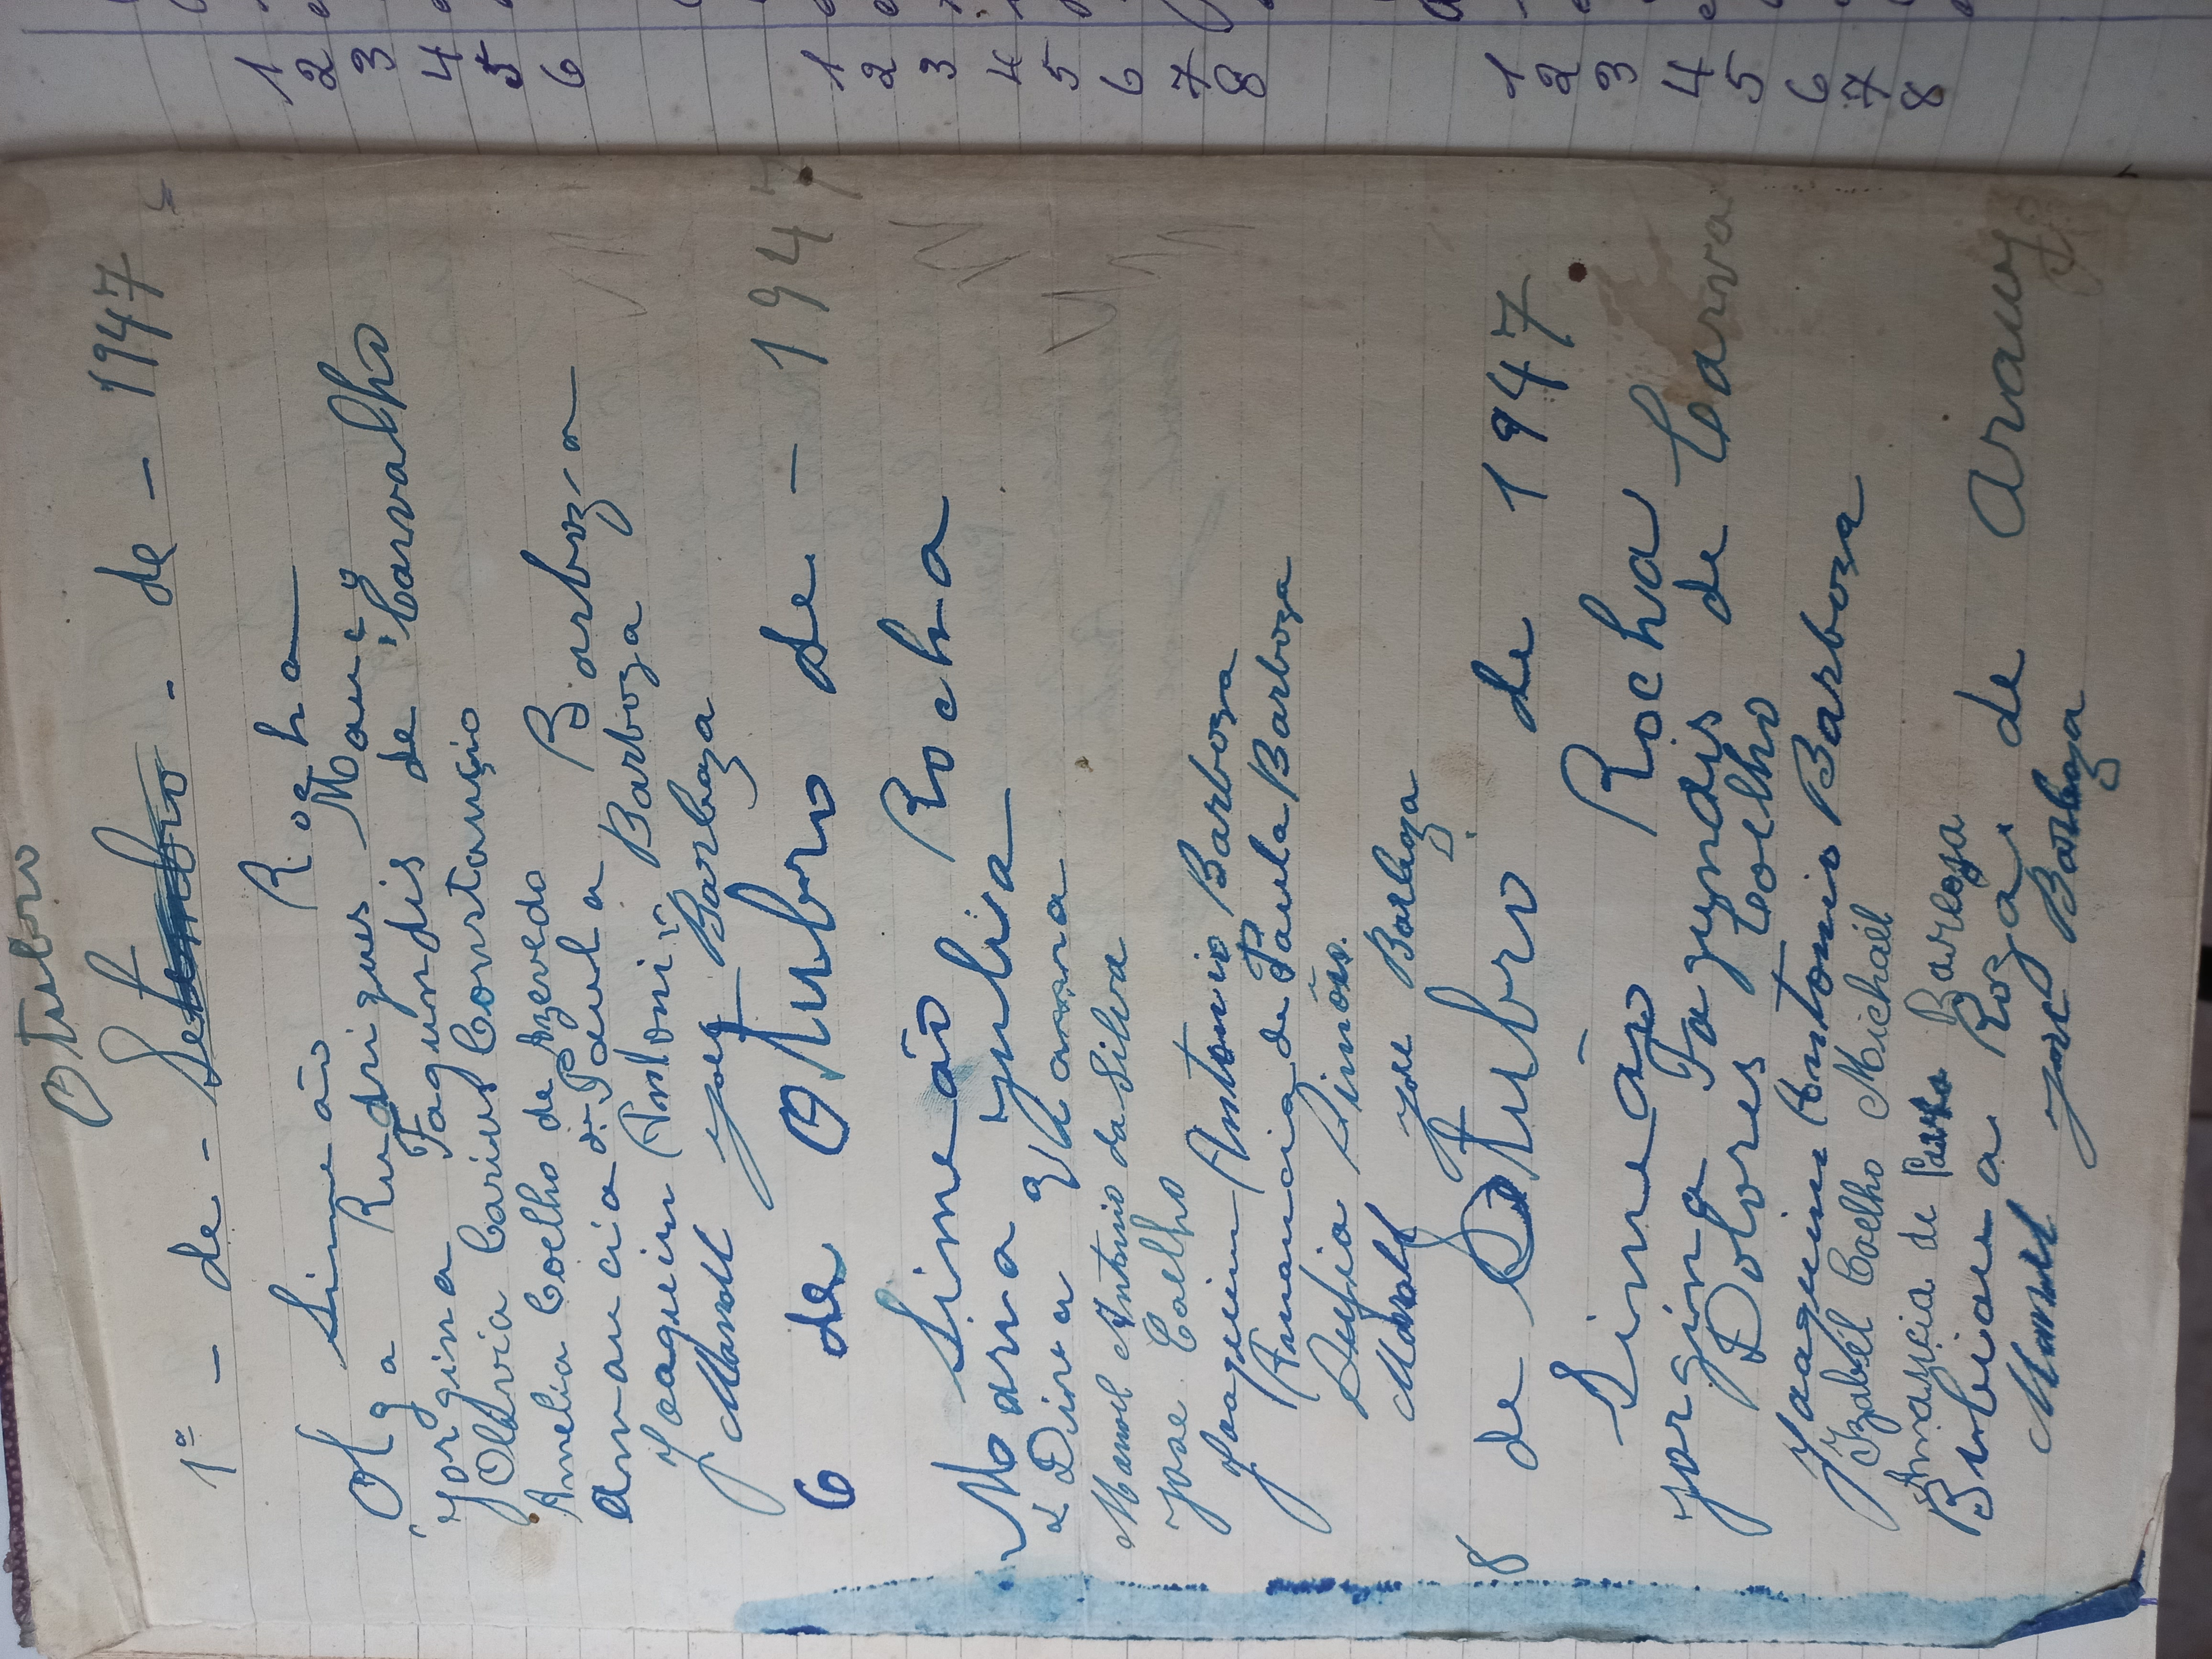 Otubro
1º - de - Setembro - de - 1947
Simeão Rocha
Olga Rudrigues
Jorgina Fagundis de Carvalho
Olavia Carius Constancio
Amelia Coelho de Azevedo
amancia de Paula Barboza
Joaquim Antonio Barboza
Manoel Jose Barboza
6 de Otubro de - 1947
Simeão Rocha
Maria Julia
Dina
Manoel Antonio da Silva
Jose Coelho
Joaquim Antonio Barboza
Amancia de Paula Barboza
Simões.
Manoel Jose Barboza
8 de Otubro de 1947
Simeão Rocha
Jorgina Fagundis de Carva
Dolores Coelho
Joaquim Antonio Barboza
Izabel Coelho Michaël
de Paula Baroza
a Roza de Araujo
Manoel Jose Barboza
1
2
3
4
5
6
1
2
3
4
5
6
7
8
1
2
3
4
5
6
7
8